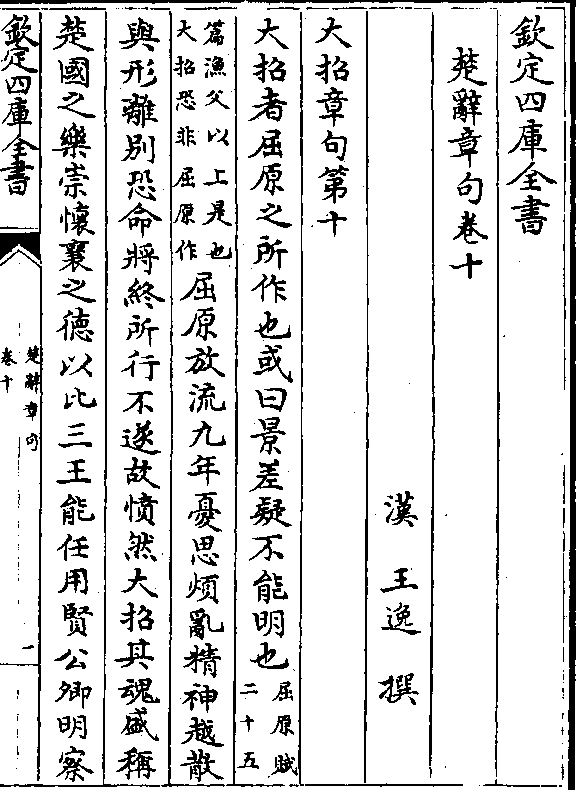 欽定四庫全書
楚辭章句卷十
漢 王逸 撰
大招章句第十
大招者屈原之所作也或曰景差疑不能明也屈原賦二十五
篇漁父以上是也大招恐非屈原作屈原放流九年憂思煩亂精神越散
與形離別恐命將終所行不遂故憤然大招其魂盛稱
楚國之樂崇懷襄之德以比三王能任用賢公卿明察
欽定四庫全書
楚辭章句
卷十
一